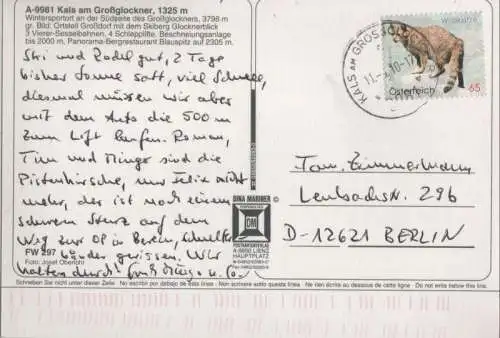 A-9981 Kals am Großglockner, 1325 m
Wintersportort an der Südseite des Großglockners, 3798 m
gr. Bild: Ortsteil Großdorf mit dem Skiberg Glocknerblick
3 Vierer-Sesselbahnen, 4 Schlepplifte, Beschneiungsanlage
bis 2000 m, Panorama-Bergrestaurant Blauspitz auf 2305 m.
Ski und Rodel gut, 2 Tage
bisher Sonne satt, viel Schnee,
diesmal müssen wir aber
mit dem Auto die 500 m
zum Lift laufen. Roman,
Tim und Mingo sind die
Pistenhirsche, nur Felix nicht
mehr, der ist nach einem
schweren Sturz auf dem
Weg zur OP in Berlin, Schulter
bänder gerissen. Wir
halten durch! Gruß Mingo u. Co.
FW 297
Foto: Josef Oberlohr
DINA MARINER
DM
POSTKARTENVERLAG
A-9900 LIENZ
HAUPTPLATZ
KALS AM GROSSGLOCKNER
Wildkatze
Österreich
65
Fam. Zimmermann
Lenbachstr. 29b
D-12621 BERLIN
Schreiben Sie nicht unter dieser Zeile No escribir por debajo de esta línea Non scrivere sotto questa linea Ne rien écrire au dessous de cette ligne Do not write below this line.